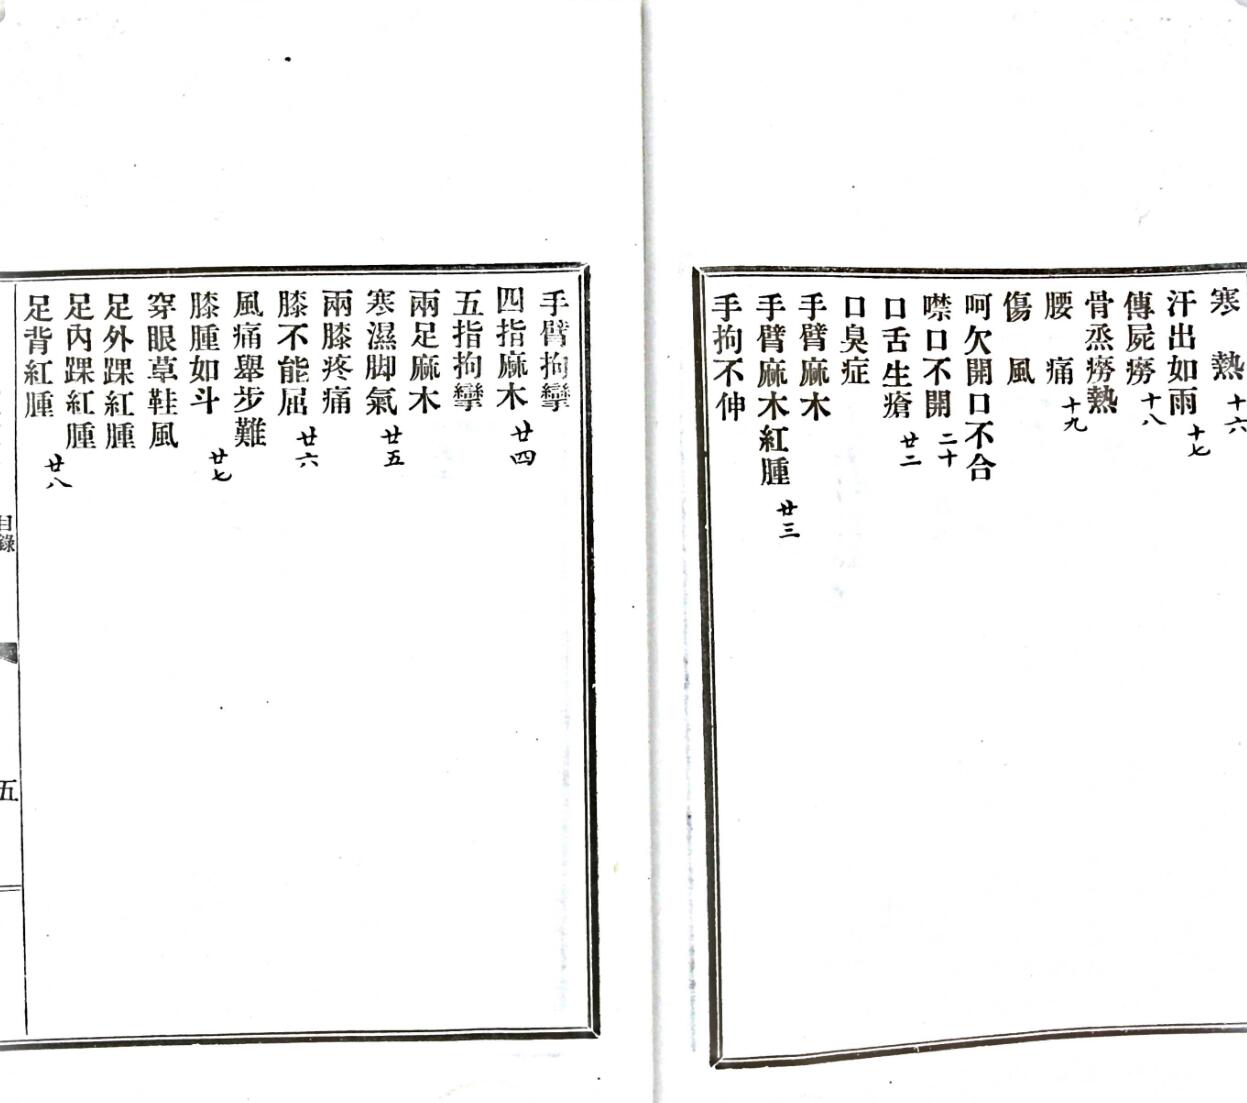 寒　熱十六
汗出如雨十七
傳屍癆十八
骨烝癆熱
腰　痛十九
傷　風
呵欠開口不合
噤口不開二十
口舌生瘡廿二
口臭症
手臂麻木
手臂麻木紅腫廿三
手拘不伸
手臂拘攣
四指麻木廿四
五指拘攣
兩足麻木
寒濕脚氣廿五
兩膝疼痛
膝不能屈廿六
風痛舉步難
膝腫如斗廿七
穿眼草鞋風
足外踝紅腫
足內踝紅腫
足背紅腫廿八
目錄
五